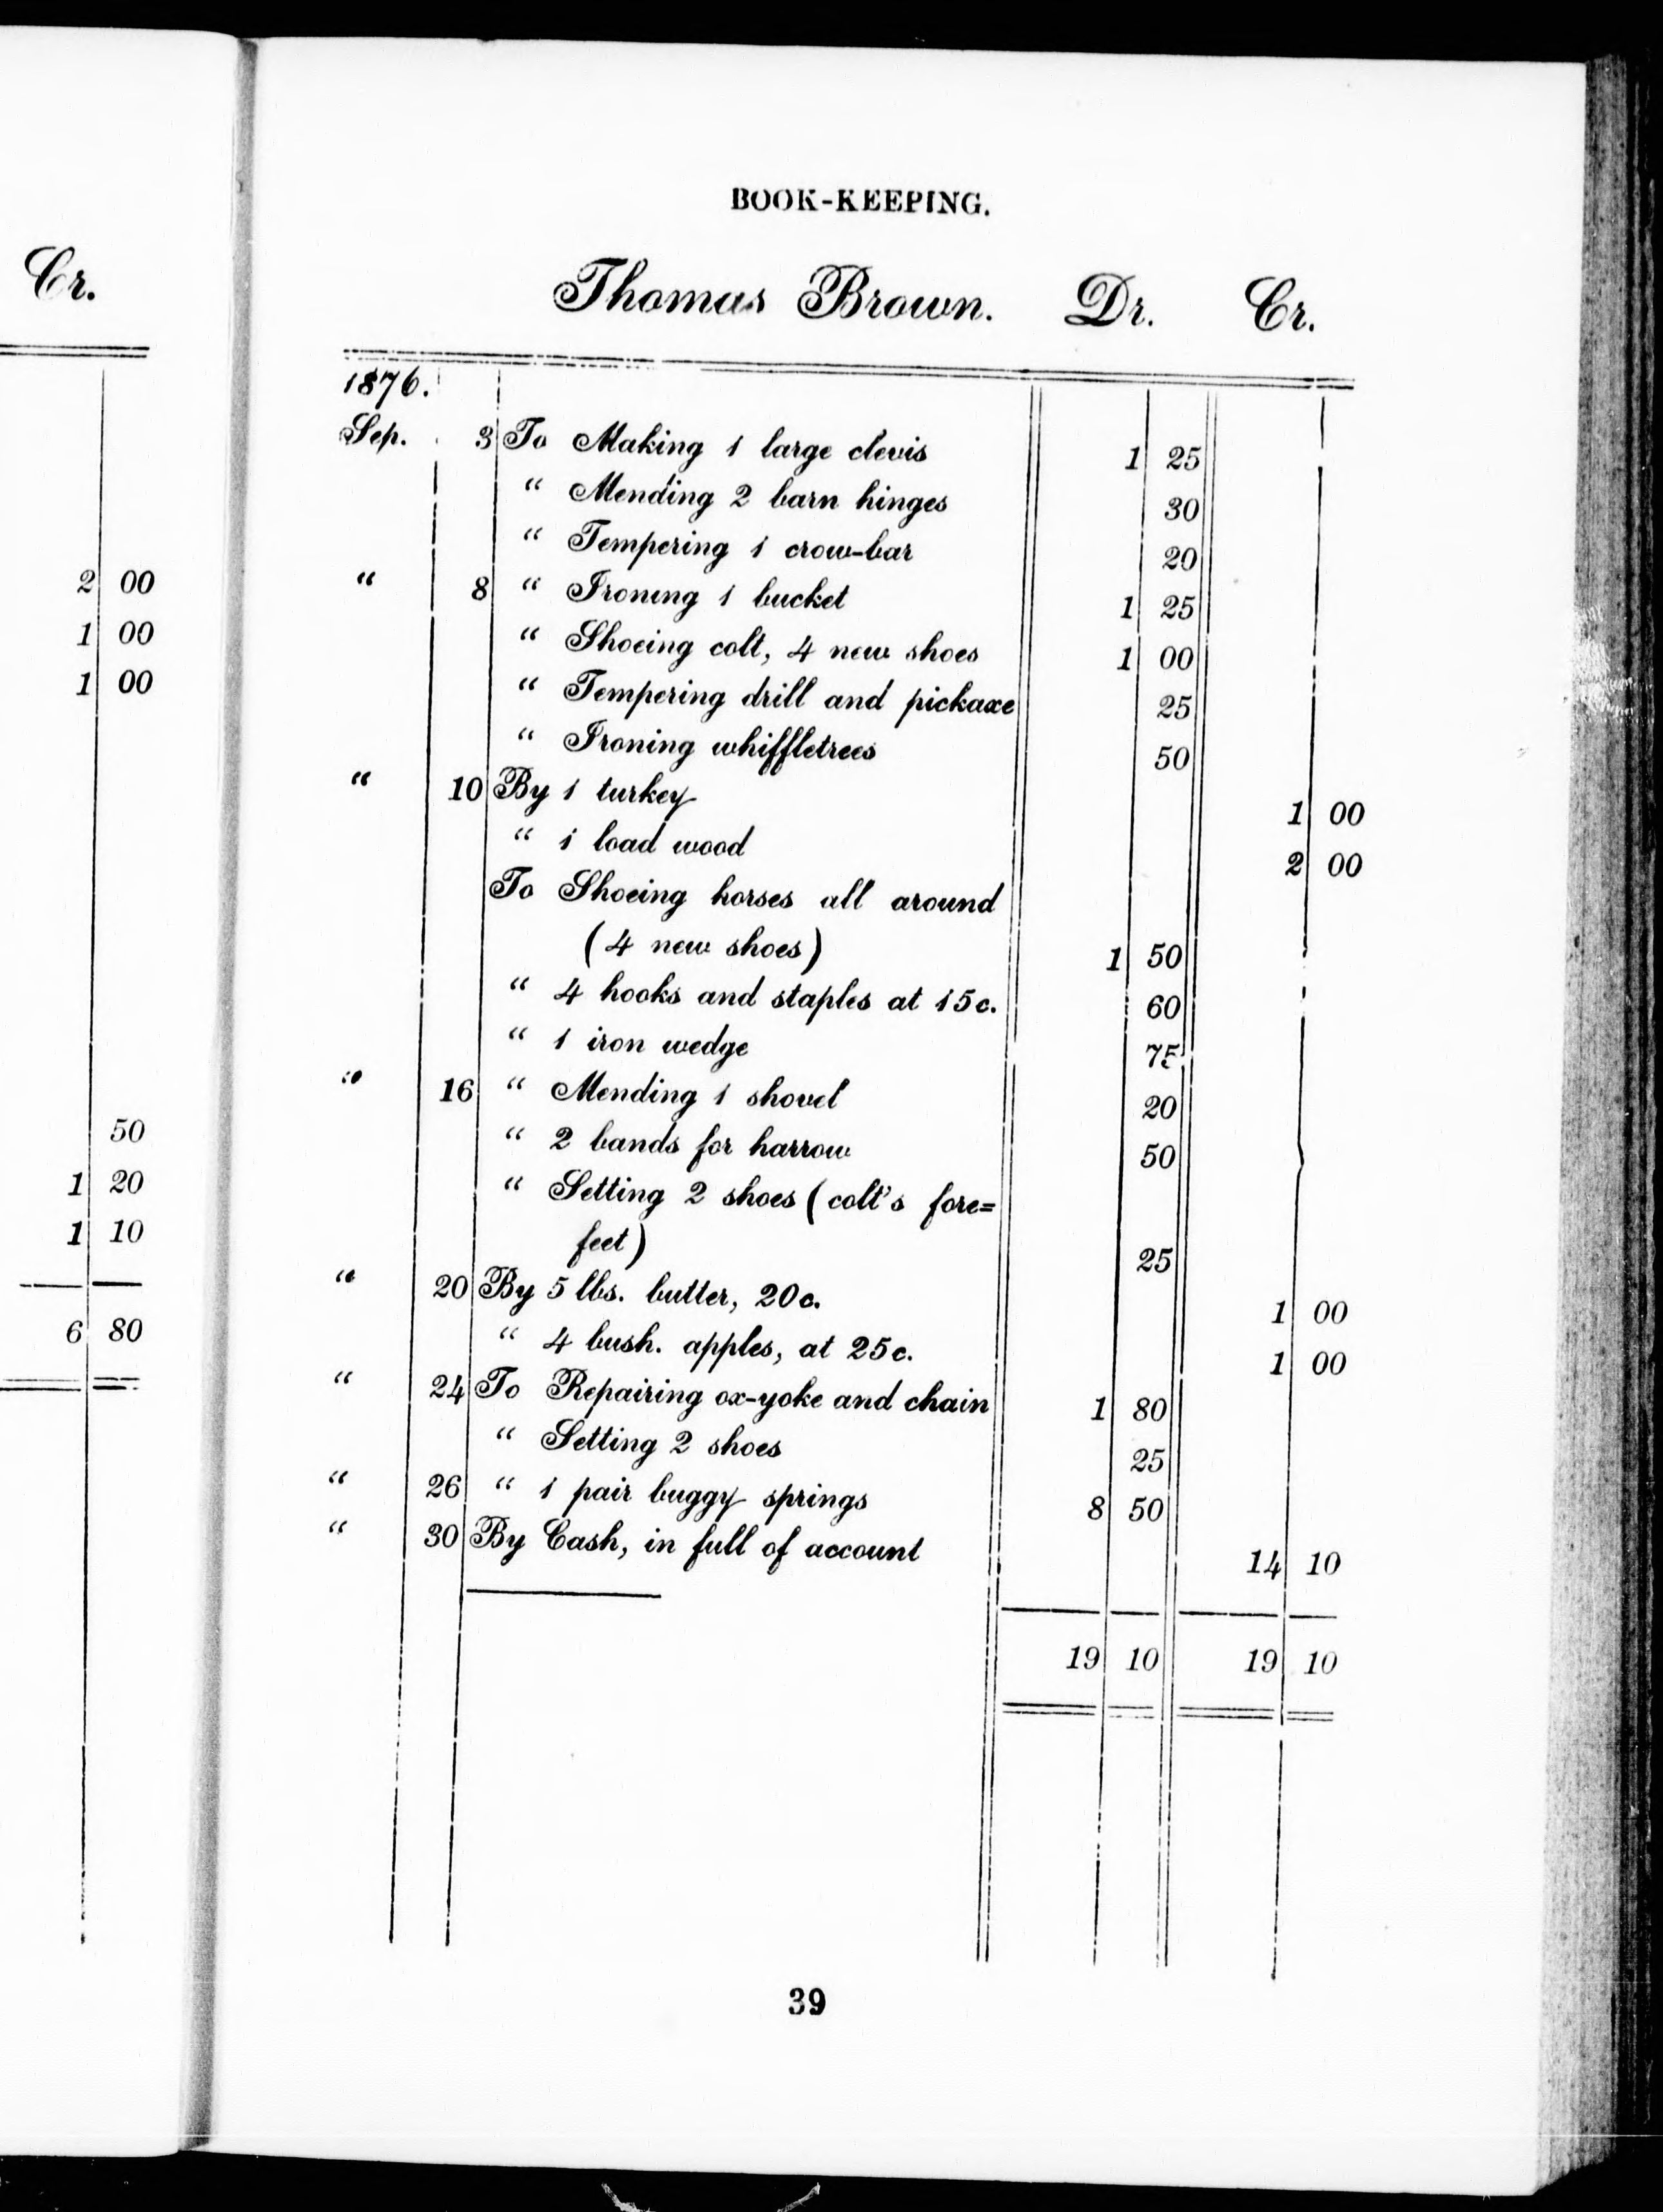 Cr.
2 00
1 00
1 00
50
1 20
1 10
6 80
BOOK-KEEPING.
Thomas Brown. Dr. Cr.
1876.
Sep. 3 To Making 1 large clevis 1 25
“ Mending 2 barn hinges 30
“ Tempering 1 crow-bar 20
“ 8 “ Ironing 1 bucket 1 25
“ Shoeing colt, 4 new shoes 1 00
“ Tempering drill and pickaxe 25
“ Ironing whiffletrees 50
“ 10 By 1 turkey 1 00
“ 1 load wood 2 00
To Shoeing horses all around
(4 new shoes) 1 50
“ 4 hooks and staples at 15c. 60
“ 1 iron wedge 75
“ 16 “ Mending 1 shovel 20
“ 2 bands for harrow 50
“ Setting 2 shoes (colt's fore=
feet) 25
“ 20 By 5 lbs. butter, 20c. 1 00
“ 4 bush. apples, at 25c. 1 00
“ 24 To Repairing ox-yoke and chain 1 80
“ Setting 2 shoes 25
“ 26 “ 1 pair buggy springs 8 50
“ 30 By Cash, in full of account 14 10
19 10 19 10
39